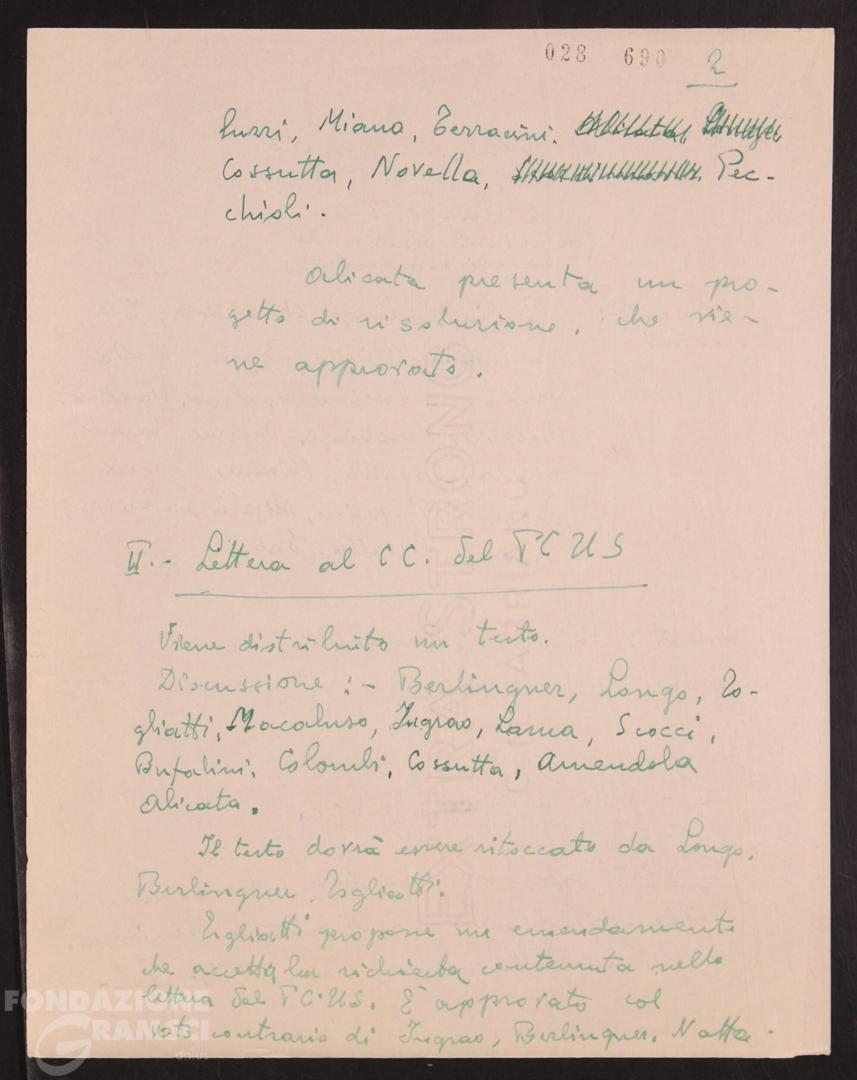 028 690 2
Miana, Terracini.
Cossutta, Novella, Pec-
chioli.
Alicata presenta un pro-
getto di risoluzione, che vie-
ne approvato.
II.- Lettera al CC. del PCUS
Viene distribuito un testo.
Discussione :- Berlinguer, Longo, To-
gliatti, Macaluso, Ingrao, Lama, Scocci,
Bufalini, Colombi, Cossutta, Amendola
Alicata.
Il testo dovrà essere ritoccato da Longo,
Berlinguer, Togliatti.
Togliatti propone un emendamento
che accetta la richiesta contenuta nella
lettera del PCUS. È approvato col
voto contrario di Ingrao, Berlinguer, Natta.
FONDAZIONE
GRAMSCI
onlus